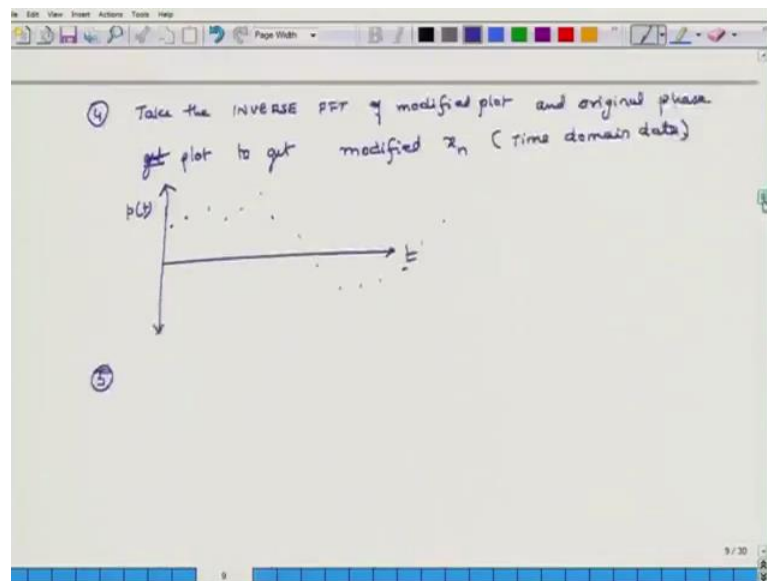 File Edit View Insert Actions Tools Help
Page Width
④ Take the INVERSE FFT of modified plot and original phase
plot to get modified xₙ (Time domain data)
p(t)
t
⑤
9 / 30
9